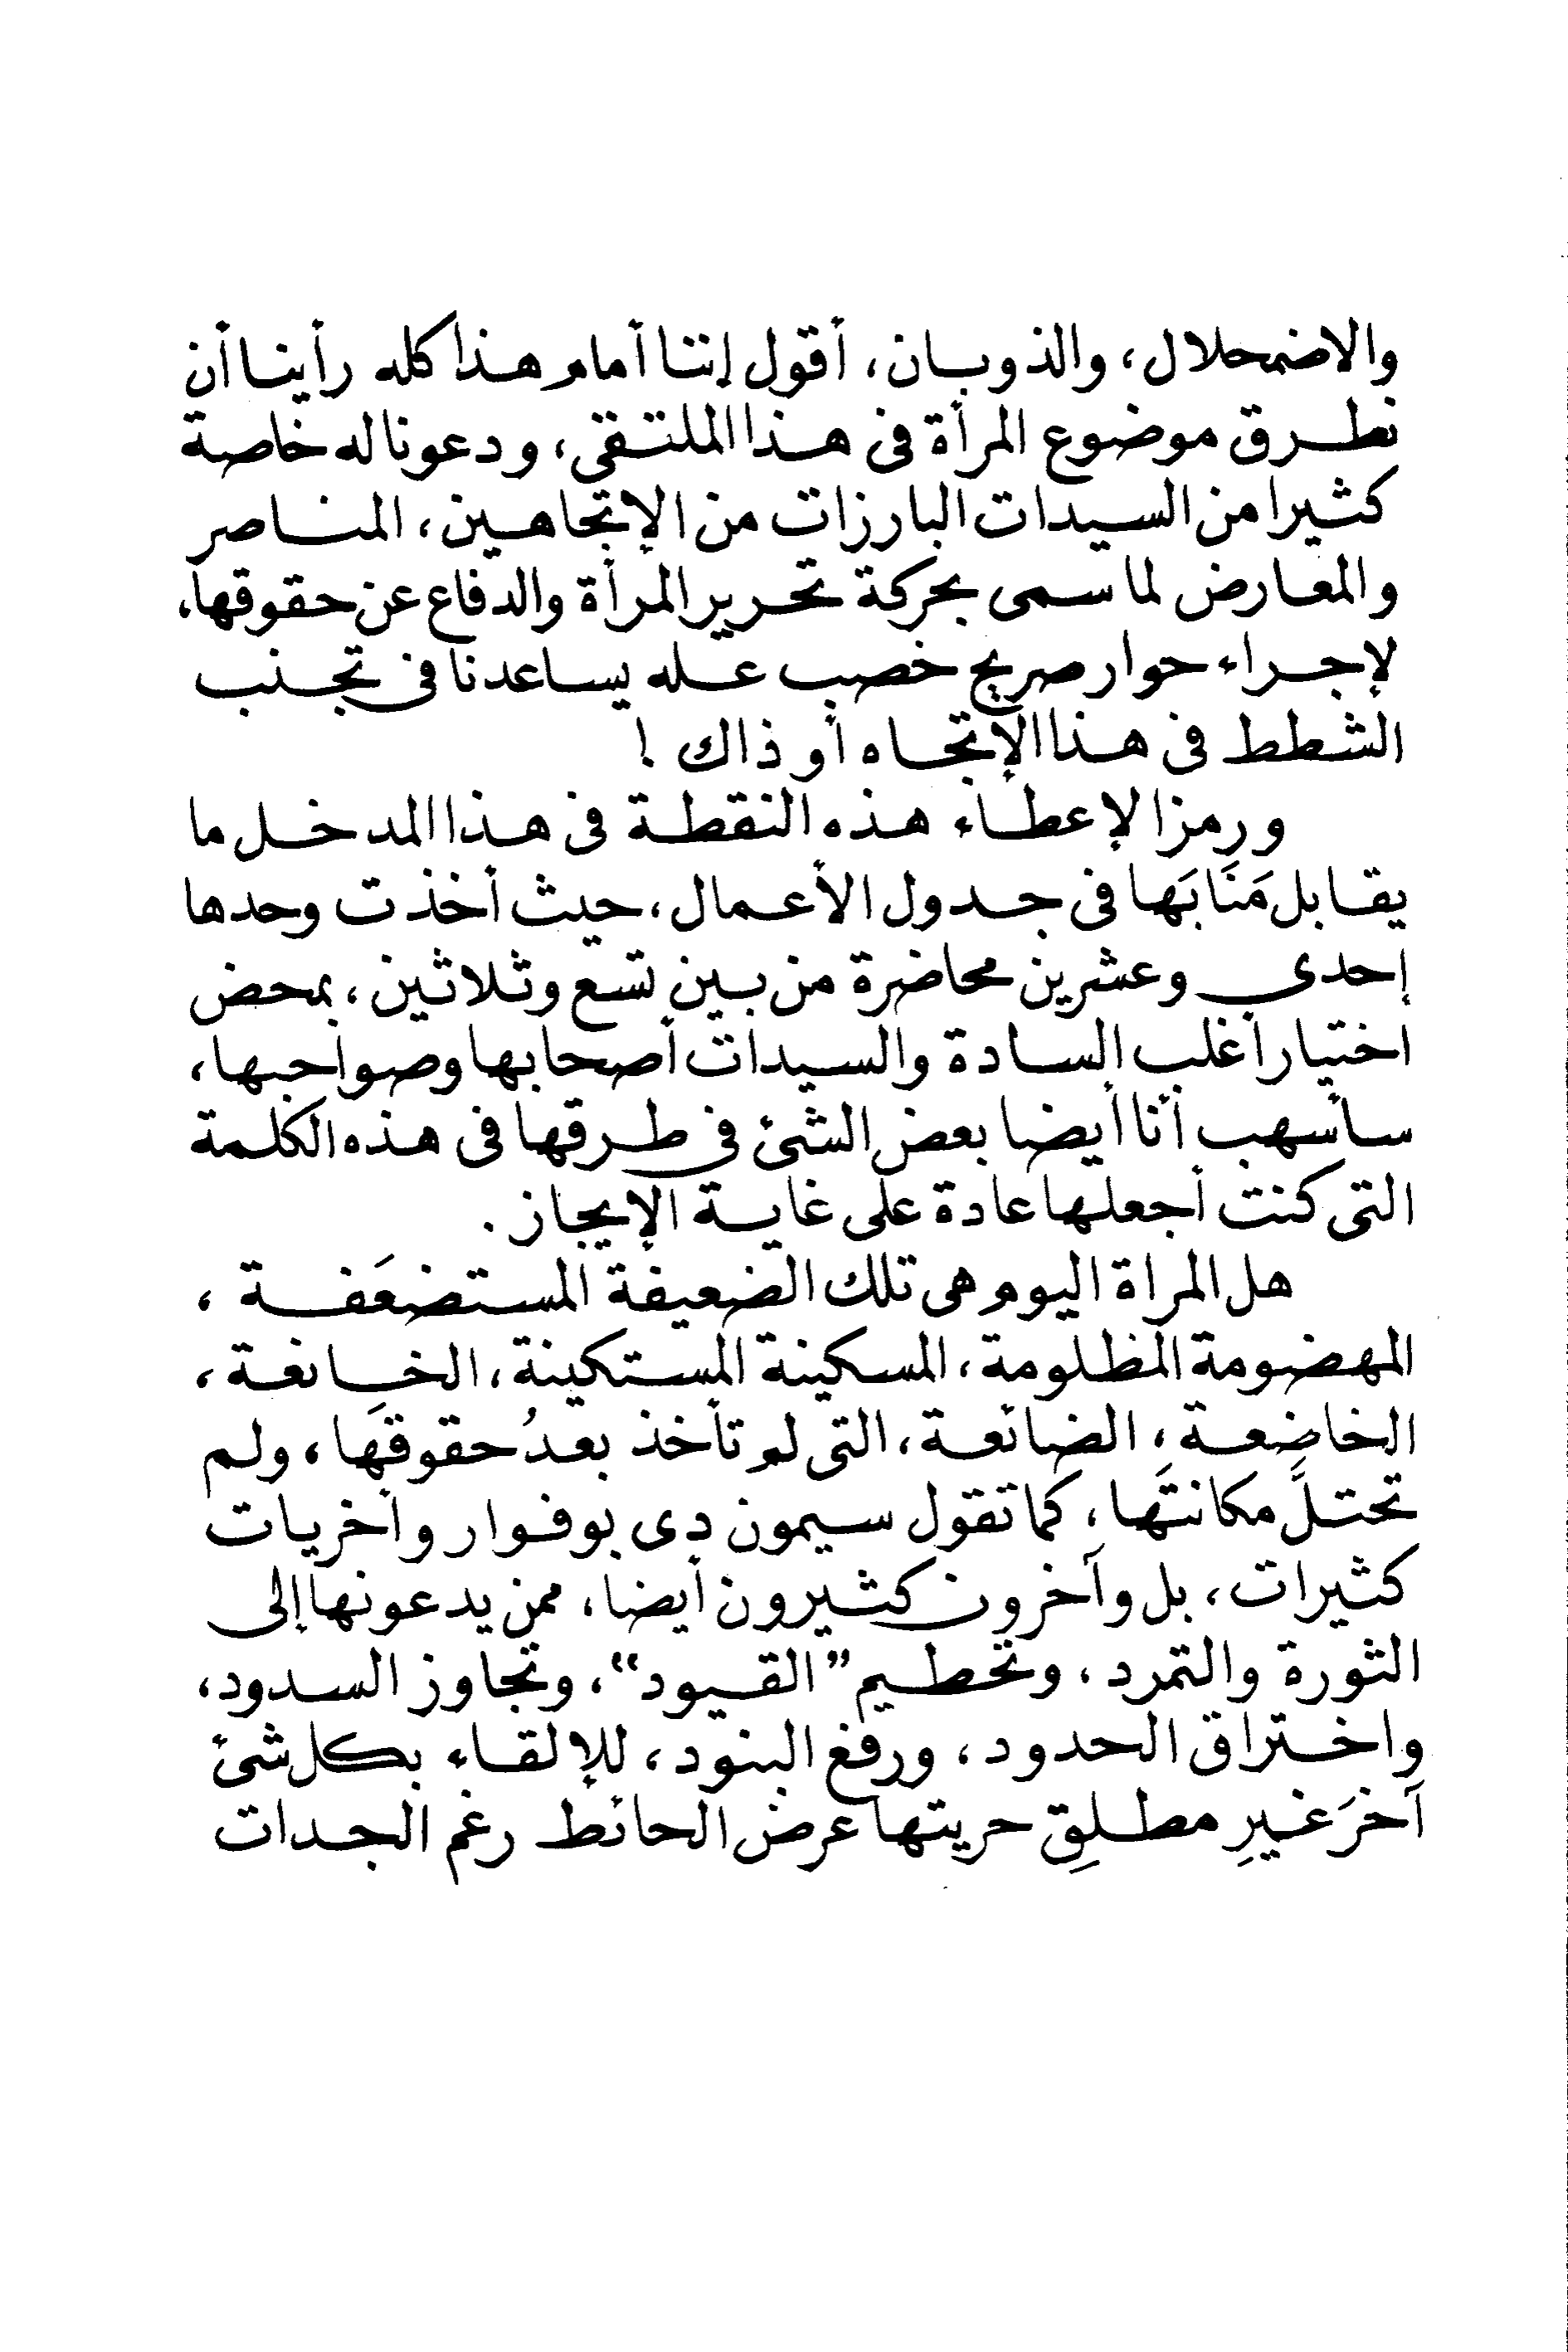 والاضمحلال، والذوبان، أقول إننا أمام هذا كله رأينا أن
نطرق موضوع المرأة فى هذا الملتقى، ودعونا له خاصة
كثيرا من السيدات البارزات من الإتجاهين، المناصر
والمعارض لما سمى بحركة تحرير المرأة والدفاع عن حقوقها،
لإجراء حوار صريح خصب عله يساعدنا فى تجنب
الشطط فى هذا الإتجاه أو ذاك !
ورمزا لإعطاء هذه النقطة فى هذا المدخل ما
يقابل مَنَابَها فى جدول الأعمال، حيث أخذت وحدها
إحدى وعشرين محاضرة من بين تسع وثلاثين، بمحض
اختيار أغلب السادة والسيدات أصحابها وصواحبها،
سأسهب أنا أيضا بعض الشئ فى طرقها فى هذه الكلمة
التى كنت أجعلها عادة على غاية الإيجاز.
هل المراة اليوم هى تلك الضعيفة المستضعَفة ،
المهضومة المظلومة، المسكينة المستكينة، الخانعة،
الخاضعة، الضائعة، التى لم تأخذ بعدُ حقوقَها، ولم
تحتلَّ مكانتَها، كما تقول سيمون دى بوفوار وأخريات
كثيرات، بل وآخرون كثيرون أيضا، ممن يدعونها إلى
الثورة والتمرد، وتحطيم "القيود"، وتجاوز السدود،
واختراق الحدود، ورفع البنود، للإلقاء بكل شئ
آخرَ غيرِ مطلِق حريتها عرض الحائط رغم الجدات